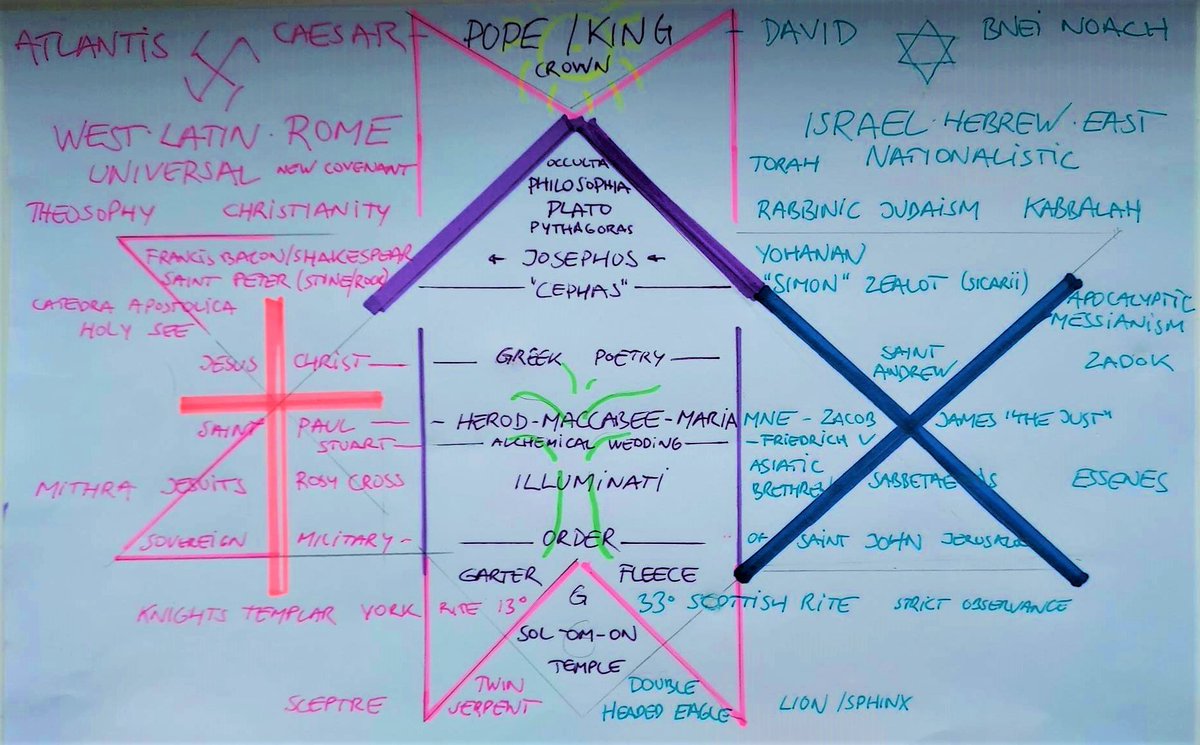 ATLANTIS CAESAR POPE / KING DAVID BNEI NOACH
CROWN
WEST · LATIN · ROME ISRAEL · HEBREW · EAST
UNIVERSAL NEW COVENANT OCCULTA TORAH NATIONALISTIC
PHILOSOPHIA
THEOSOPHY CHRISTIANITY PLATO RABBINIC JUDAISM KABBALAH
PYTHAGORAS
FRANCIS BACON/SHAKESPEAR JOSEPHOS YOHANAN
SAINT PETER (STINE/ROCK) "CEPHAS" "SIMON" ZEALOT (SICARII)
CATEDRA APOSTOLICA APOCALYPTIC
HOLY SEE MESSIANISM
JESUS CHRIST GREEK POETRY SAINT ZADOK
ANDREW
SAINT PAUL HEROD-MACCABEE-MARIAMNE - ZACOB JAMES "THE JUST"
STUART ALCHEMICAL WEDDING - FRIEDRICH V
MITHRA JESUITS ROSY CROSS ILLUMINATI ASIATIC ESSENES
BRETHREN
SOVEREIGN MILITARY - ORDER OF SAINT JOHN
GARTER FLEECE
KNIGHTS TEMPLAR YORK RITE 13° G 33° SCOTTISH RITE STRICT OBSERVANCE
SOL-OM-ON
TEMPLE
SCEPTRE TWIN DOUBLE LION /SPHINX
SERPENT HEADED EAGLE